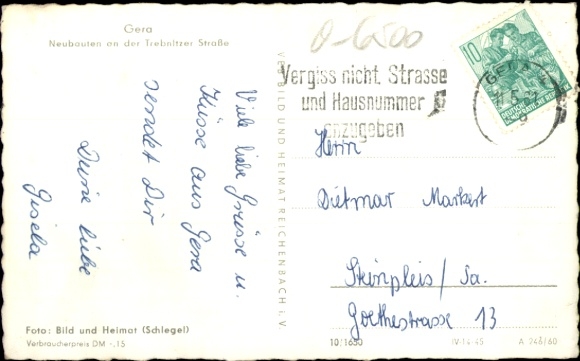 Gera
Neubauten an der Trebnitzer Straße
O-6500
Vergiss nicht, Strasse
und Hausnummer
anzugeben
10
GERA
DEUTSCHE
DEMOKRATISCHE
Viele liebe Grüsse u.
Küsse aus Gera
sendet Dir
Deine liebe
Gisela
VEB BILD UND HEIMAT REICHENBACH i. V
Herrn
Dietmar Markert
Steinpleis / Sa.
Goethestrasse 13
Foto: Bild und Heimat (Schlegel)
Verbraucherpreis DM -.15
10/1650
IV-14-45
A 248/60